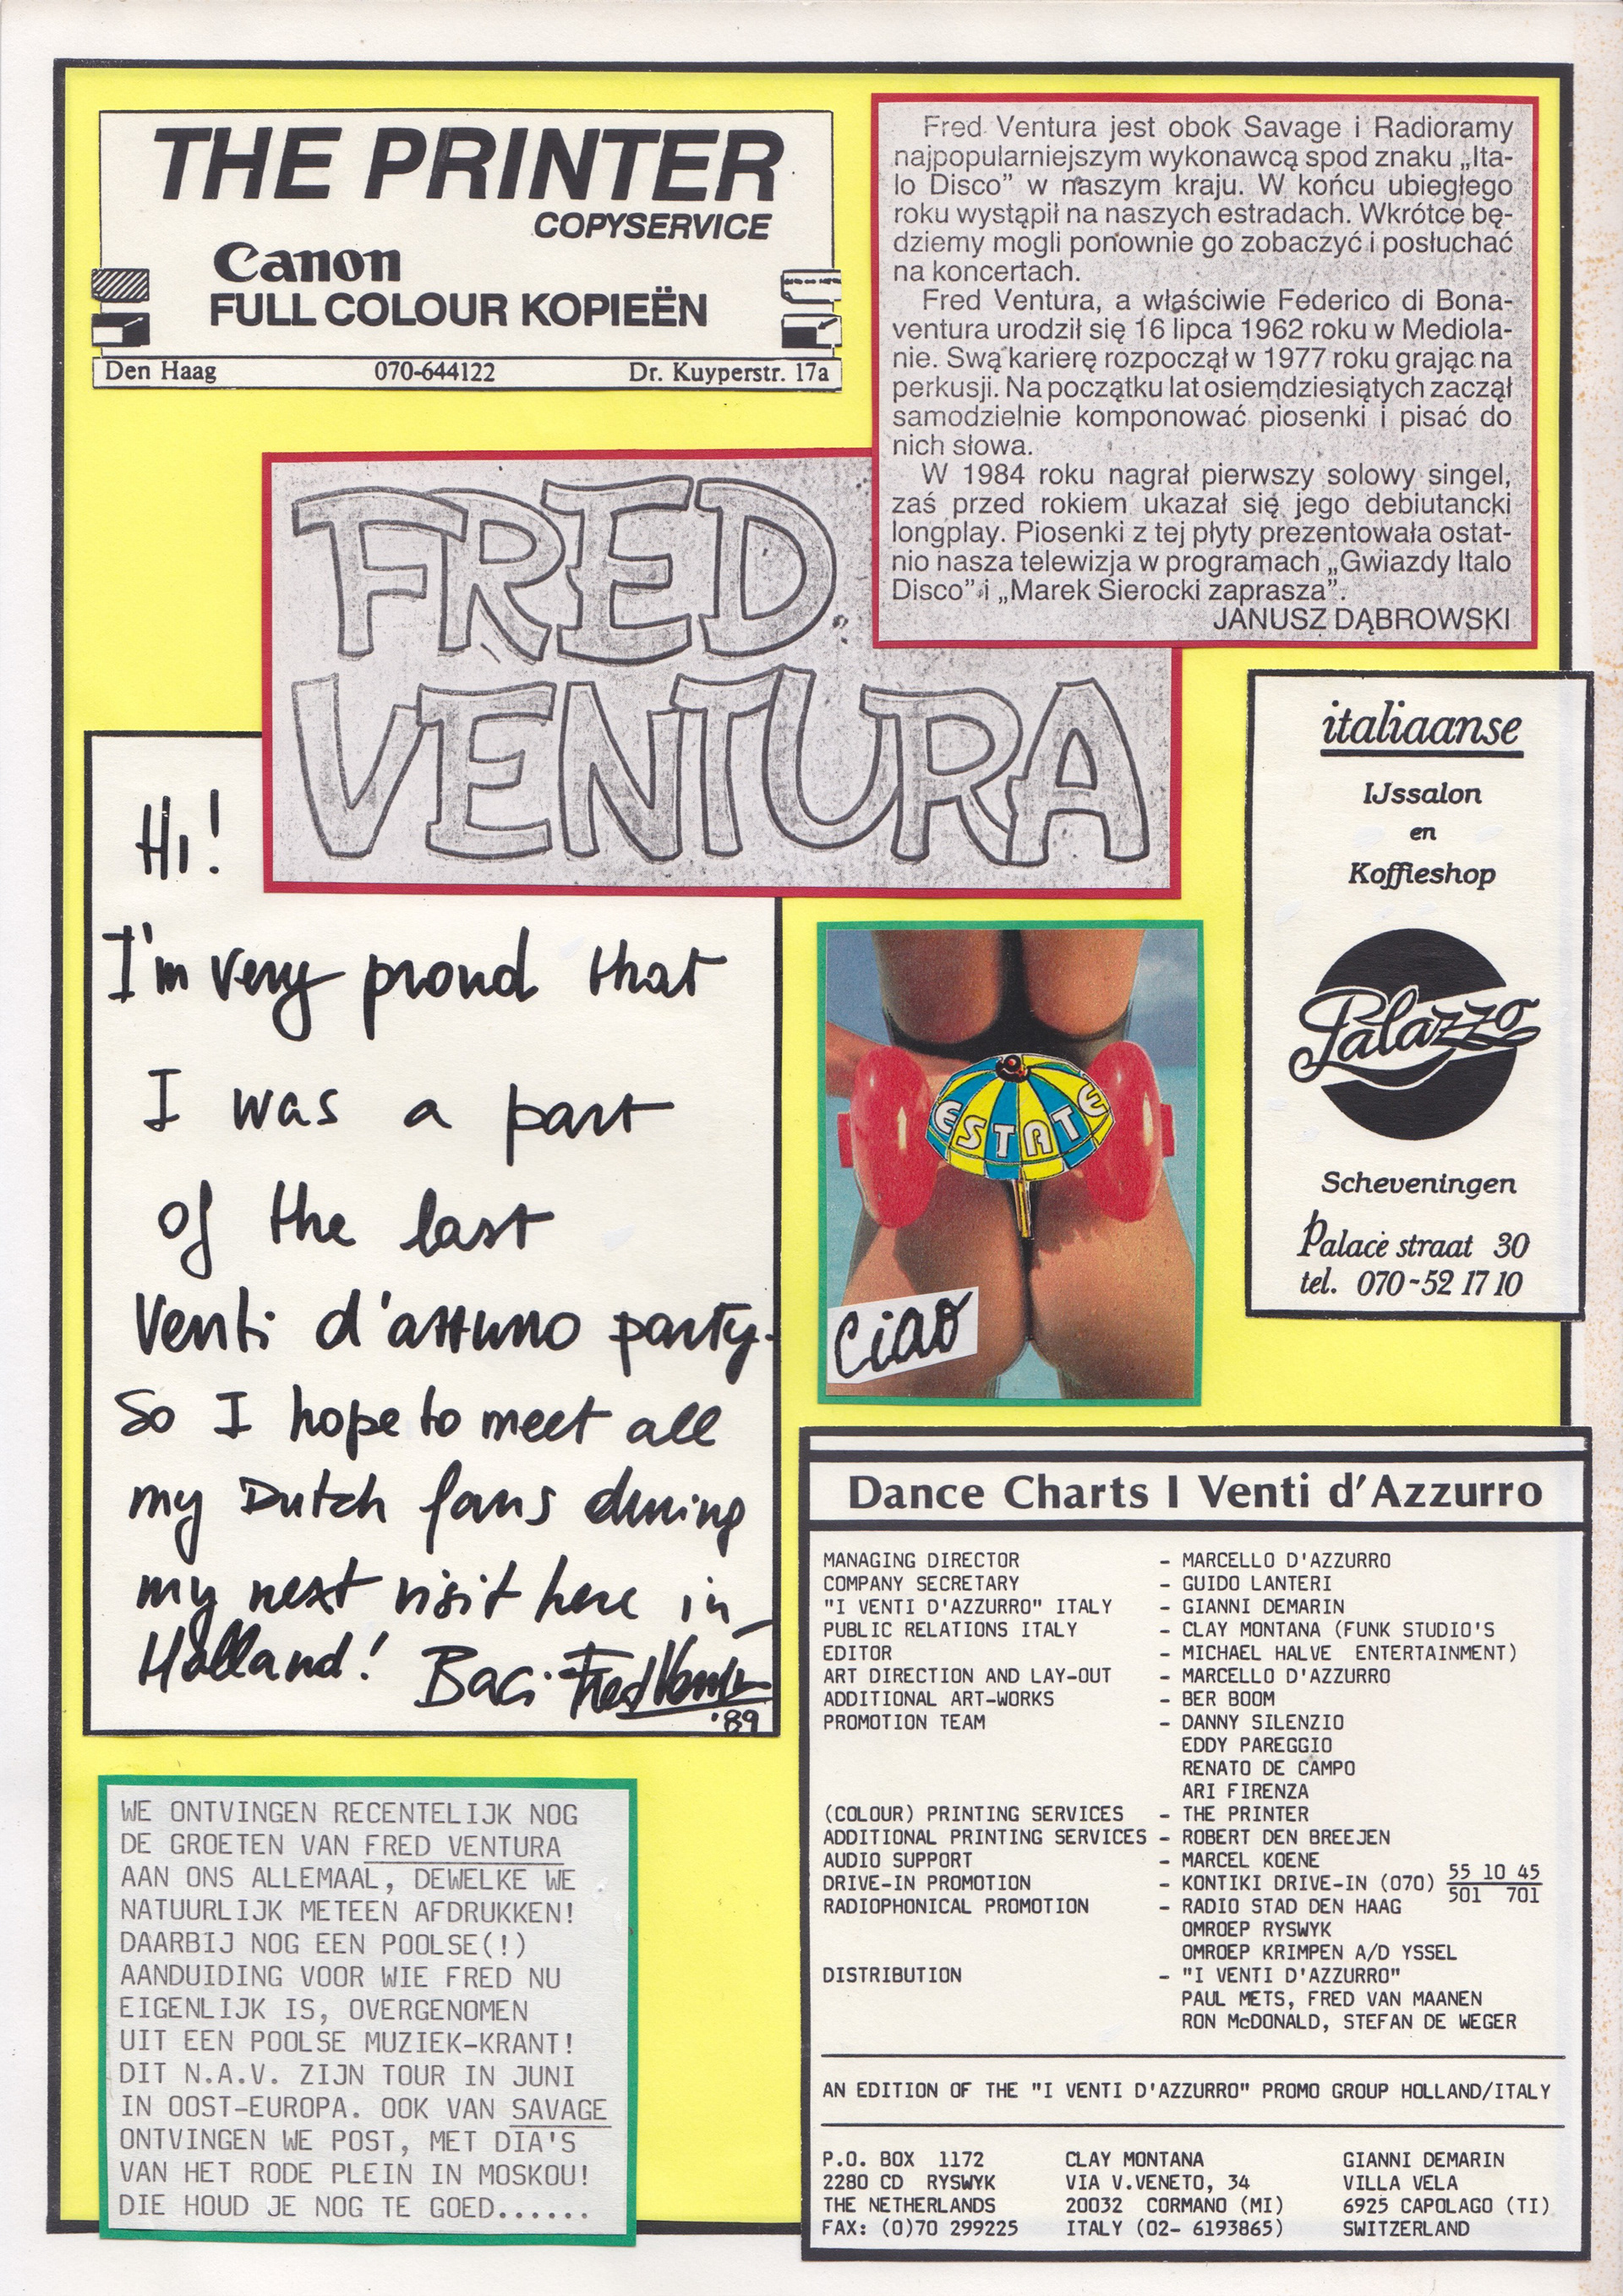 THE PRINTER
COPYSERVICE
Canon
FULL COLOUR KOPIEËN
Den Haag 070-644122 Dr. Kuyperstr. 17a
Fred Ventura jest obok Savage i Radioramy
najpopularniejszym wykonawcą spod znaku „Ita-
lo Disco” w naszym kraju. W końcu ubiegłego
roku wystąpił na naszych estradach. Wkrótce bę-
dziemy mogli ponownie go zobaczyć i posłuchać
na koncertach.
Fred Ventura, a właściwie Federico di Bona-
ventura urodził się 16 lipca 1962 roku w Mediola-
nie. Swą karierę rozpoczął w 1977 roku grając na
perkusji. Na początku lat osiemdziesiątych zaczął
samodzielnie komponować piosenki i pisać do
nich słowa.
W 1984 roku nagrał pierwszy solowy singel,
zaś przed rokiem ukazał się jego debiutancki
longplay. Piosenki z tej płyty prezentowała ostat-
nio nasza telewizja w programach „Gwiazdy Italo
Disco” i „Marek Sierocki zaprasza”.
JANUSZ DĄBROWSKI
FRED
VENTURA
Hi!
I'm very proud that
I was a part
of the last
Venti d'azzurro party.
So I hope to meet all
my Dutch fans during
my next visit here in
Holland! Baci Fred Ventura
'89
italiaanse
IJssalon
en
Koffieshop
Palazzo
Scheveningen
Palace straat 30
tel. 070-52 17 10
ESTATE
Ciao
WE ONTVINGEN RECENTELIJK NOG
DE GROETEN VAN FRED VENTURA
AAN ONS ALLEMAAL, DEWELKE WE
NATUURLIJK METEEN AFDRUKKEN!
DAARBIJ NOG EEN POOLSE(!)
AANDUIDING VOOR WIE FRED NU
EIGENLIJK IS, OVERGENOMEN
UIT EEN POOLSE MUZIEK-KRANT!
DIT N.A.V. ZIJN TOUR IN JUNI
IN OOST-EUROPA. OOK VAN SAVAGE
ONTVINGEN WE POST, MET DIA'S
VAN HET RODE PLEIN IN MOSKOU!
DIE HOUD JE NOG TE GOED......
Dance Charts I Venti d'Azzurro
MANAGING DIRECTOR - MARCELLO D'AZZURRO
COMPANY SECRETARY - GUIDO LANTERI
"I VENTI D'AZZURRO" ITALY - GIANNI DEMARIN
PUBLIC RELATIONS ITALY - CLAY MONTANA (FUNK STUDIO'S
EDITOR - MICHAEL HALVE ENTERTAINMENT)
ART DIRECTION AND LAY-OUT - MARCELLO D'AZZURRO
ADDITIONAL ART-WORKS - BER BOOM
PROMOTION TEAM - DANNY SILENZIO
EDDY PAREGGIO
RENATO DE CAMPO
ARI FIRENZA
(COLOUR) PRINTING SERVICES - THE PRINTER
ADDITIONAL PRINTING SERVICES - ROBERT DEN BREEJEN
AUDIO SUPPORT - MARCEL KOENE
DRIVE-IN PROMOTION - KONTIKI DRIVE-IN (070) 55 10 45
501 701
RADIOPHONICAL PROMOTION - RADIO STAD DEN HAAG
OMROEP RYSWYK
OMROEP KRIMPEN A/D YSSEL
DISTRIBUTION - "I VENTI D'AZZURRO"
PAUL METS, FRED VAN MAANEN
RON McDONALD, STEFAN DE WEGER
AN EDITION OF THE "I VENTI D'AZZURRO" PROMO GROUP HOLLAND/ITALY
P.O. BOX 1172 CLAY MONTANA GIANNI DEMARIN
2280 CD RYSWYK VIA V.VENETO, 34 VILLA VELA
THE NETHERLANDS 20032 CORMANO (MI) 6925 CAPOLAGO (TI)
FAX: (0)70 299225 ITALY (02- 6193865) SWITZERLAND